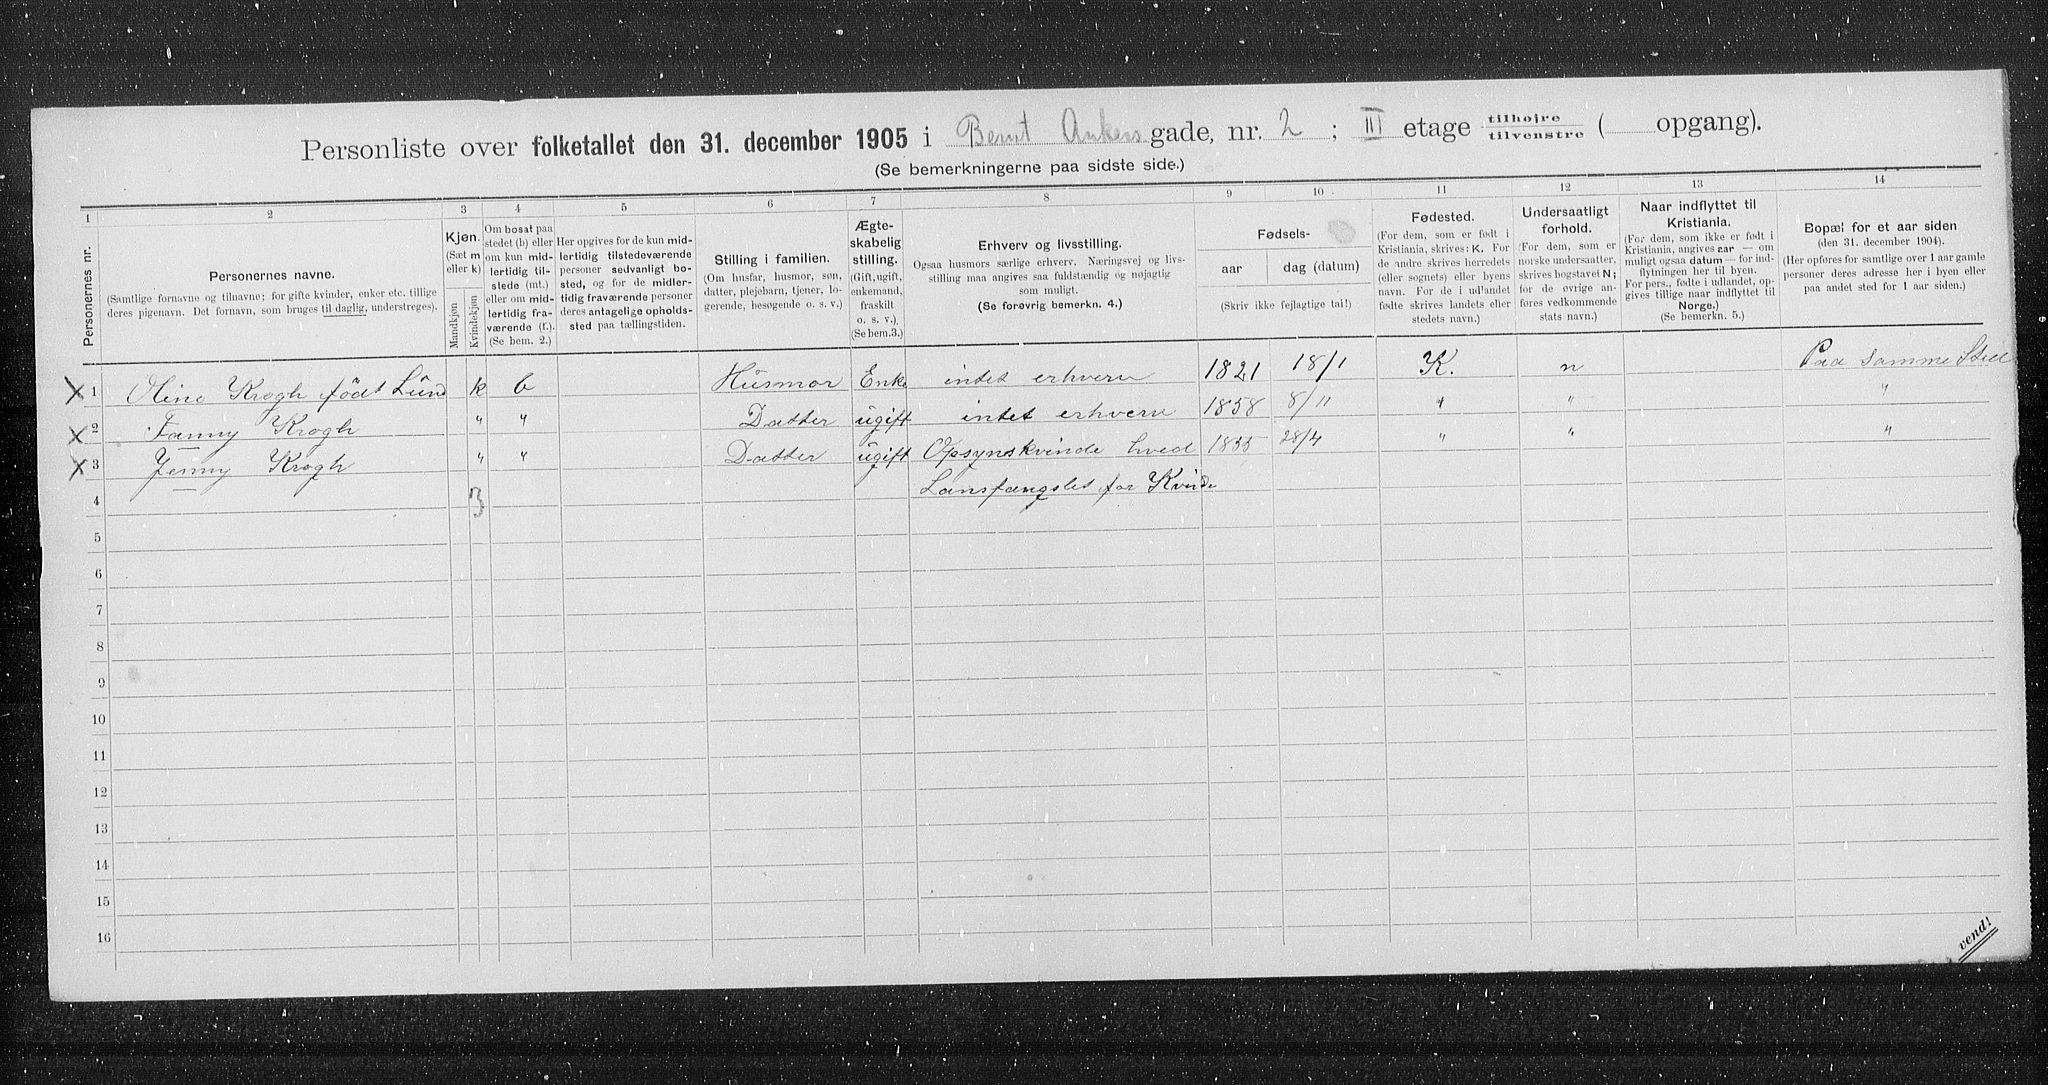 Personliste over folketallet den 31. december 1905 i Bernt Ankers gade, nr. 2 ; III etage tilhøjre tilvenstre ( opgang).
(Se bemerkningerne paa sidste side.)
1 2 3 4 5 6 7 8 9 10 11 12 13 14
Personernes nr.
Personernes navne.
(Samtlige fornavne og tilnavne; for gifte kvinder, enker etc. tillige
deres pigenavn. Det fornavn, som bruges til daglig, understreges).
Kjøn.
(Sæt m
eller k)
Mandkjøn
Kvindekjøn
Om bosat paa
stedet (b) eller
om kun mid-
lertidig til-
stede (mt.)
eller om mid-
lertidig fra-
værende (f.).
(Se bem. 2.)
Her opgives for de kun mid-
lertidig tilstedeværende
personer sedvanligt bo-
sted, og for de midler-
tidig fraværende personer
deres antagelige opholds-
sted paa tællingstiden.
Stilling i familien.
(Om husfar, husmor, søn,
datter, plejebarn, tjener, lo-
gerende, besøgende o. s. v.)
Ægte-
skabelig
stilling.
(Gift, ugift,
enkemand,
fraskilt
o. s. v.).
(Se bem.3.)
Erhverv og livsstilling.
Ogsaa husmors særlige erhverv. Næringsvej og livs-
stilling maa angives saa fuldstændig og nøjagtig
som muligt.
(Se forøvrig bemerkn. 4.)
Fødsels-
aar
dag (datum)
(Skriv ikke fejlagtige tal!)
Fødested.
(For dem, som er født i
Kristiania, skrives: K. For
de andre skrives herredets
(eller sognets) eller byens
navn. For de i udlandet
fødte skrives landets eller
stedets navn.)
Undersaatligt
forhold.
(For dem, som er
norske undersaatter,
skrives bogstavet N;
for de øvrige an-
føres vedkommende
stats navn.)
Naar indflyttet til
Kristiania.
(For dem, som ikke er født i
Kristiania, angives aar — om
muligt ogsaa datum — for ind-
flytningen her til byen.
For pers., fødte i udlandet, op-
gives tillige naar indflyttet til
Norge.)
(Se bemerkn. 5.)
Bopæl for et aar siden
(den 31. december 1904).
(Her opføres for samtlige over 1 aar gamle
personer deres adresse her i byen eller
paa andet sted for 1 aar siden.)
X 1 Oline Krogh født Lund k b Husmor Enke intet erhverv 1821 18/1 K. n Paa samme Sted
X 2 Fanny Krogh " " Datter ugift intet erhverv 1858 8/11 " " "
X 3 Jenny Krogh " " Datter ugift Opsynskvinde hved 1855 28/4 " " "
4 3 Lansfangslet for Kvinde
5
6
7
8
9
10
11
12
13
14
15
16
vend!